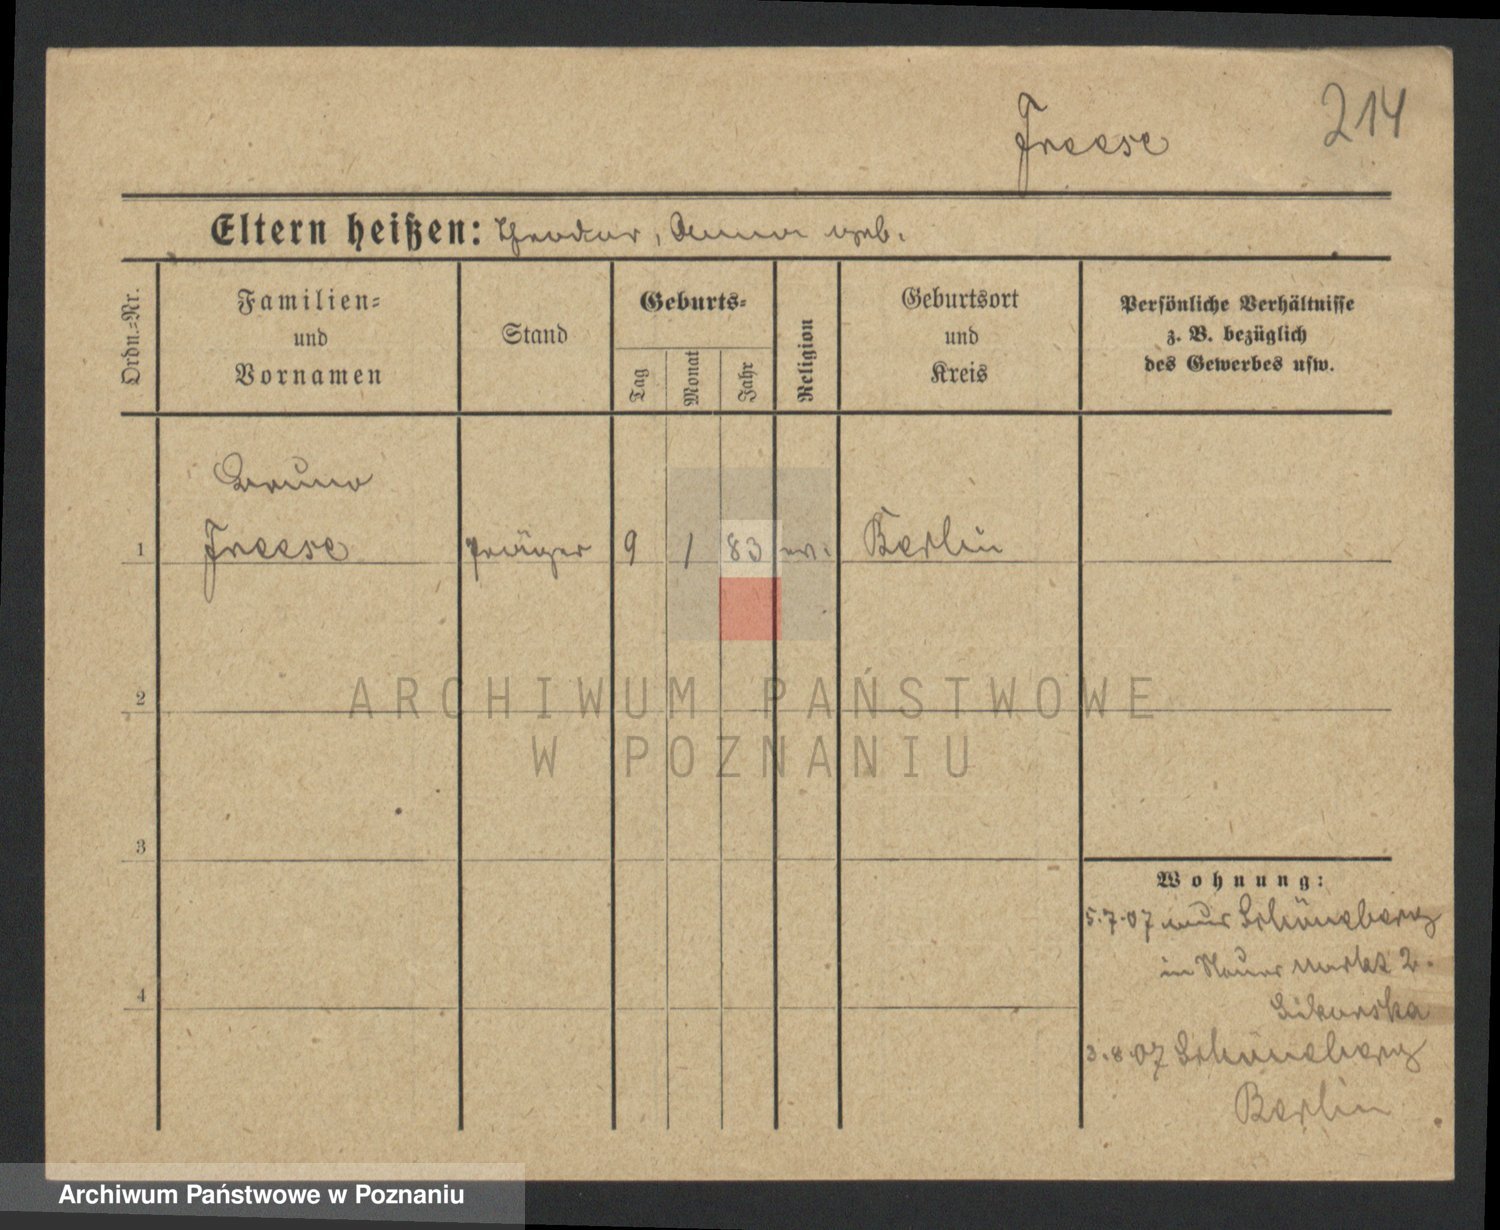 214
Freese
Eltern heißen: Theodor, Anna geb.
Ordn.-Nr.
Familien-
und
Vornamen
Stand
Geburts-
Tag
Monat
Jahr
Religion
Geburtsort
und
Kreis
Persönliche Verhältnisse
z. B. bezüglich
des Gewerbes usw.
Bruno
1 Freese Präger 9 1 83 ev. Berlin
2
ARCHIWUM PAŃSTWOWE
W POZNANIU
3
Wohnung:
5.7.07 aus Schöneberg
in Neuer Markt 2.
4
Sikorska
3.8.07 Schöneberg
Berlin
Archiwum Państwowe w Poznaniu